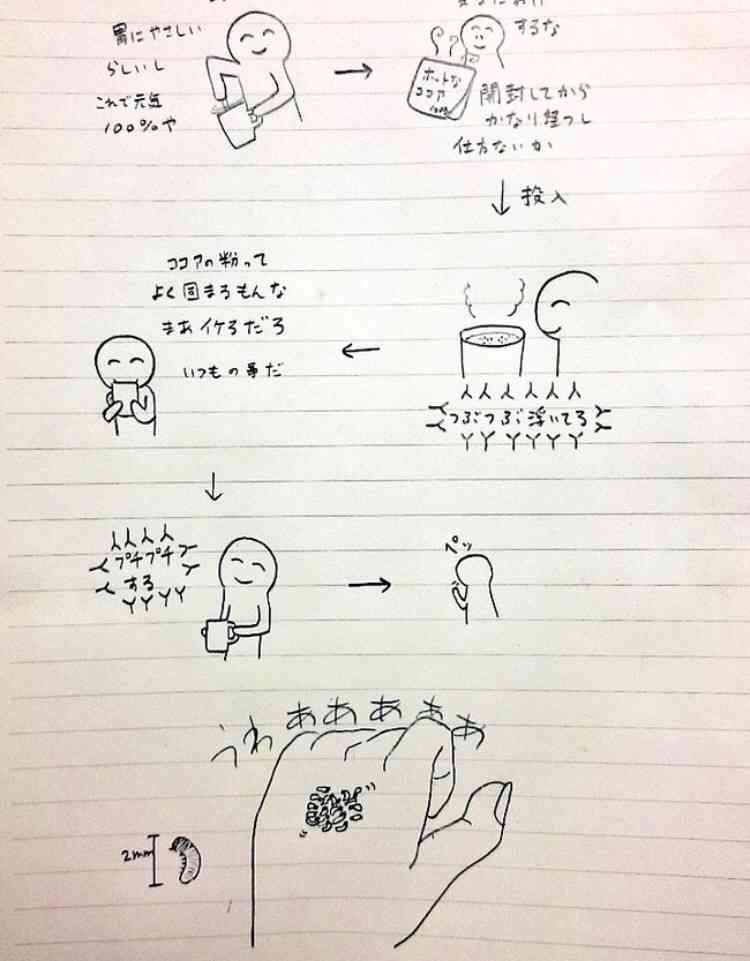 胃にやさしい
らしいし
これで元気
100%や
するな
ホットな
ココア
開封してから
かなり経つし
仕方ないか
投入
つぶつぶ浮いてる
ココアの粉って
よく固まるもんな
まあイケるだろ
いつもの事だ
プチプチ
する
ペッ
うわああああぁ
2mm